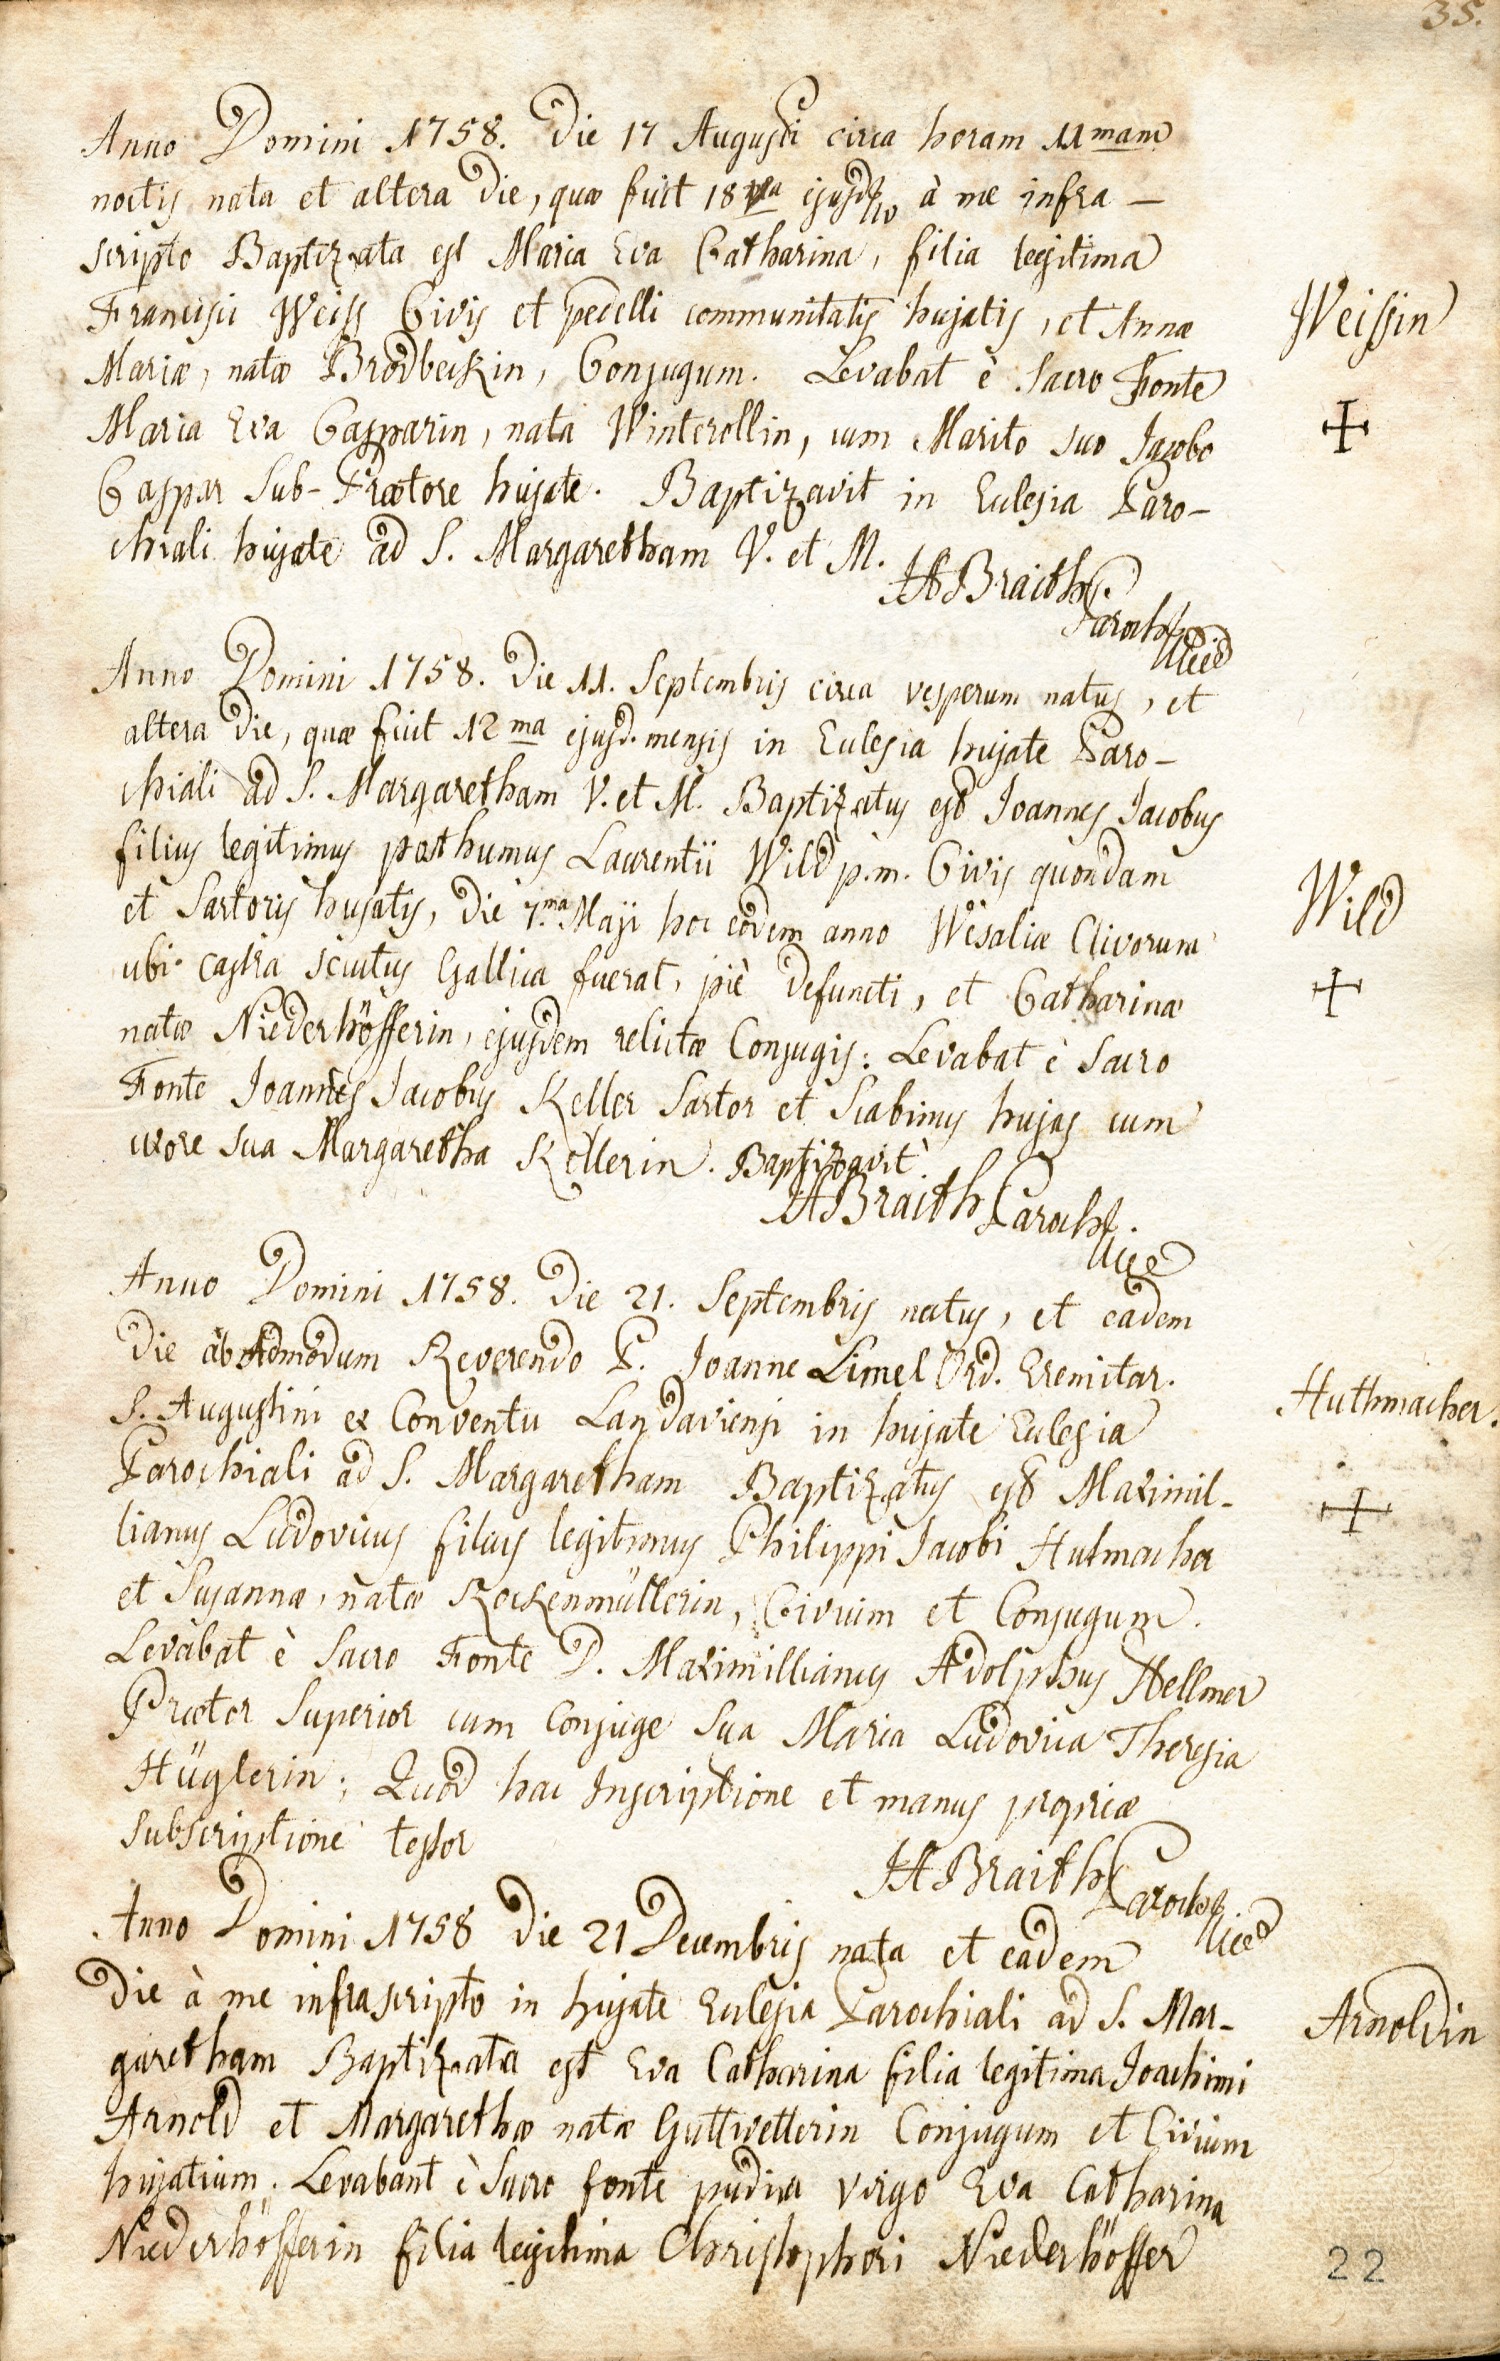 35.
Anno Domini 1758. Die 17 Augusti circa horam 11mam
noctis nata et altera Die, quæ fuit 18va ejusd. à me infra-
scripto Baptizata est Maria Eva Catharina, filia legitima
Francisci Weiss Civis et pedelli communitatis hujatis, et Annæ
Weissin
Mariæ, natæ Brodbeckin, Conjugum. Levabat è Sacro Fonte
Maria Eva Casparin, nata Winterollin, cum Marito suo Jacobo
Caspar Sub-Prætore hujate. Baptizavit in Eclesia Paro-
chiali hujate ad S. Margaretham V. et M.
HABraith
Paroch
Anno Domini 1758. Die 11. Septembris circa vesperum natus, et
altera Die, quæ fuit 12ma ejusd. mensis in Eclesia hujate Paro-
chiali ad S. Margaretham V. et M. Baptizatus est Joannes Jacobus
filius legitimus posthumus Laurentii Wild p.m. Civis quondam
Wild
et Sartoris hujatis, Die 7.ma Maji hoc eodem anno Wesaliæ Clivorum
ubi castra secutus Gallica fuerat, piè defuncti, et Catharinæ
natæ Niederhöfferin, ejusdem relictæ Conjugis: Levabat è Sacro
Fonte Joannes Jacobus Keller Sartor et Scabinus hujas cum
uxore sua Margaretha Kellerin. Baptizavit
HABraith Paroch
Anno Domini 1758. Die 21. Septembris natus, et eadem
Die ab Admodum Reverendo P. Joanne Limel Ord. Eremitar.
Huthmacher.
S. Augustini ex Conventu Landaviensi in hujate Eclesia
Parochiali ad S. Margaretham Baptizatus est Maximil-
lianus Ludovicus filius legitimus Philippi Jacobi Hutmacher
et Susannæ, natæ Rockenmüllerin, Civium et Conjugum.
Levabat è Sacro Fonte D. Maximillianus Adolphus Hellmer
Prætor Superior cum Conjuge Sua Maria Ludovica Theresia
Hüglerin; Quod hac Inscriptione et manus propriæ
Subscriptione testor
HABraith Paroch
Anno Domini 1758 Die 21 Decembris nata et eadem
Die à me infrascripto in hujate Eclesia Parochiali ad S. Mar-
Arnoldin
garetham Baptizata est Eva Catharina filia legitima Joachimi
Arnold et Margarethæ natæ Guttwetterin Conjugum et Civium
hujatium. Levabant è Sacro fonte pudica virgo Eva Catharina
Niederhöfferin filia legitima Christophori Niederhöffer
22